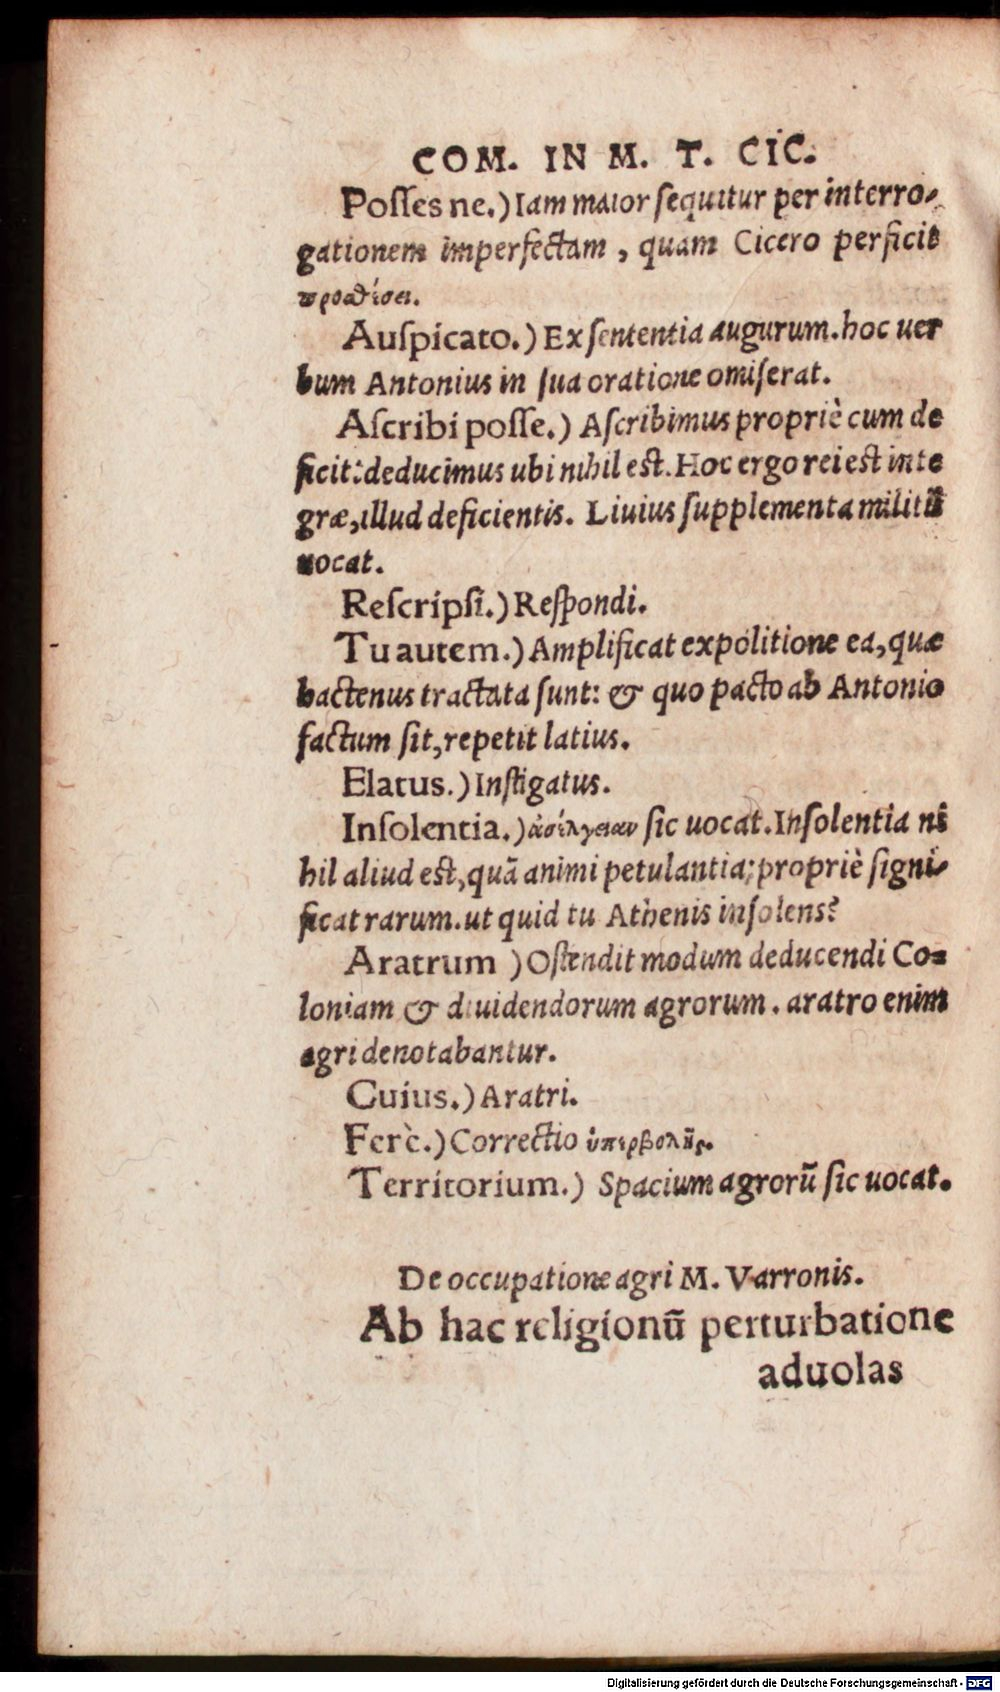 COM. IN M. T. CIC.
Posses ne.) Iam maior sequitur per interro-
gationem imperfectam, quam Cicero perficit
προσθέσει.
Auspicato.) Ex sententia augurum. hoc uer
bum Antonius in sua oratione omiserat.
Ascribi posse.) Ascribimus propriè cum de
ficit: deducimus ubi nihil est. Hoc ergo rei est inte
græ, illud deficientis. Liuius supplementa militū
uocat.
Rescripsi.) Respondi.
Tu autem.) Amplificat expolitione ea, quæ
hactenus tractata sunt: & quo pacto ab Antonio
factum sit, repetit latius.
Elatus.) Instigatus.
Insolentia.) ἀσέλγειαν sic uocat. Insolentia ni
hil aliud est, quā animi petulantia; propriè signi-
ficat rarum. ut quid tu Athenis insolens?
Aratrum ) Ostendit modum deducendi Co=
loniam & diuidendorum agrorum. aratro enim
agri denotabantur.
Cuius.) Aratri.
Ferè.) Correctio ὑπερβολῆς.
Territorium.) Spacium agrorū sic uocat.
De occupatione agri M. Varronis.
Ab hac religionū perturbatione
aduolas
Digitalisierung gefördert durch die Deutsche Forschungsgemeinschaft - DFG